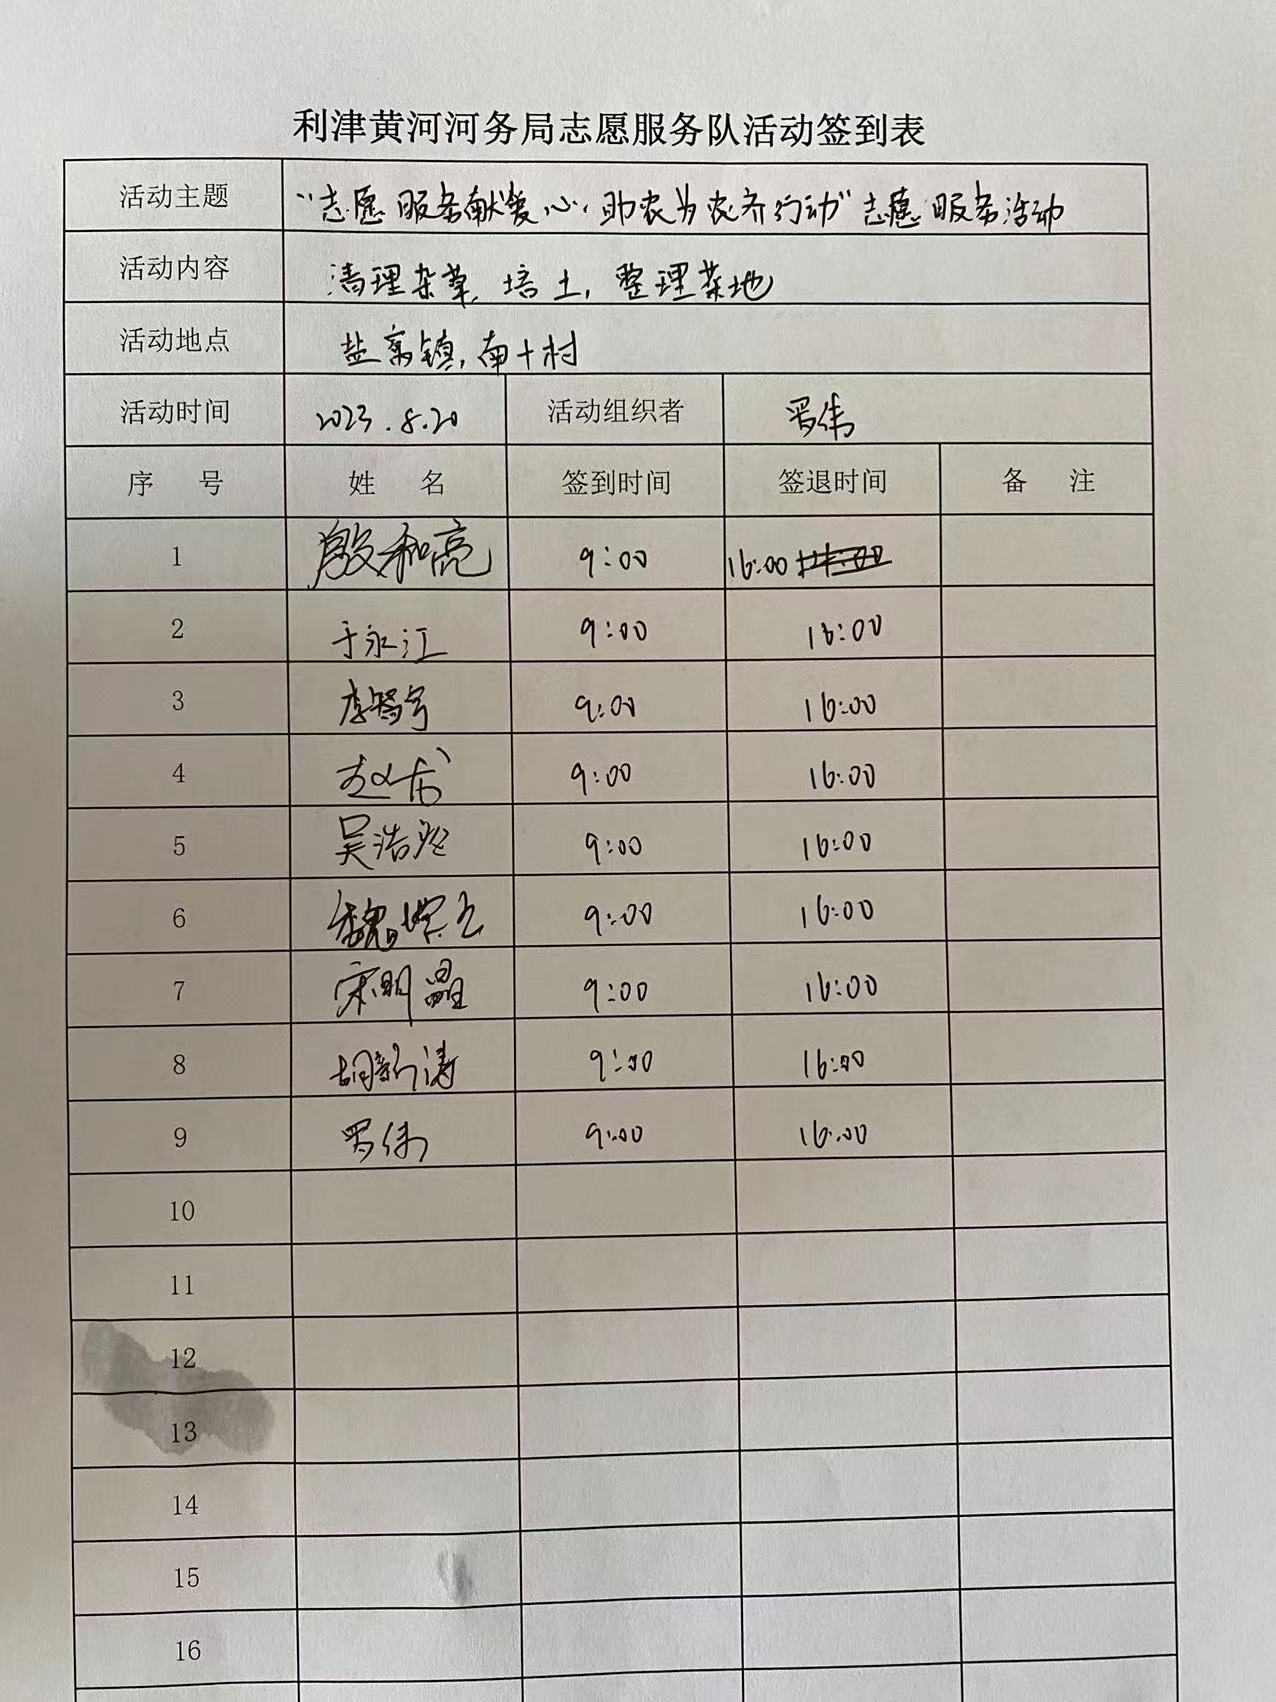 利津黄河河务局志愿服务队活动签到表
活动主题 "志愿服务献爱心，助农为农齐行动"志愿服务活动
活动内容 清理杂草，培土，整理菜地
活动地点 盐窝镇，南十村
活动时间 2023.8.20 活动组织者 罗伟
序 号 姓 名 签到时间 签退时间 备 注
1 殷和亮 9:00 16:00
2 于永江 9:00 16:00
3 9:00 16:00
4 9:00 16:00
5 吴浩 9:00 16:00
6 魏 9:00 16:00
7 宋明晶 9:00 16:00
8 胡新涛 9:00 16:00
9 罗伟 9:00 16:00
10
11
12
13
14
15
16